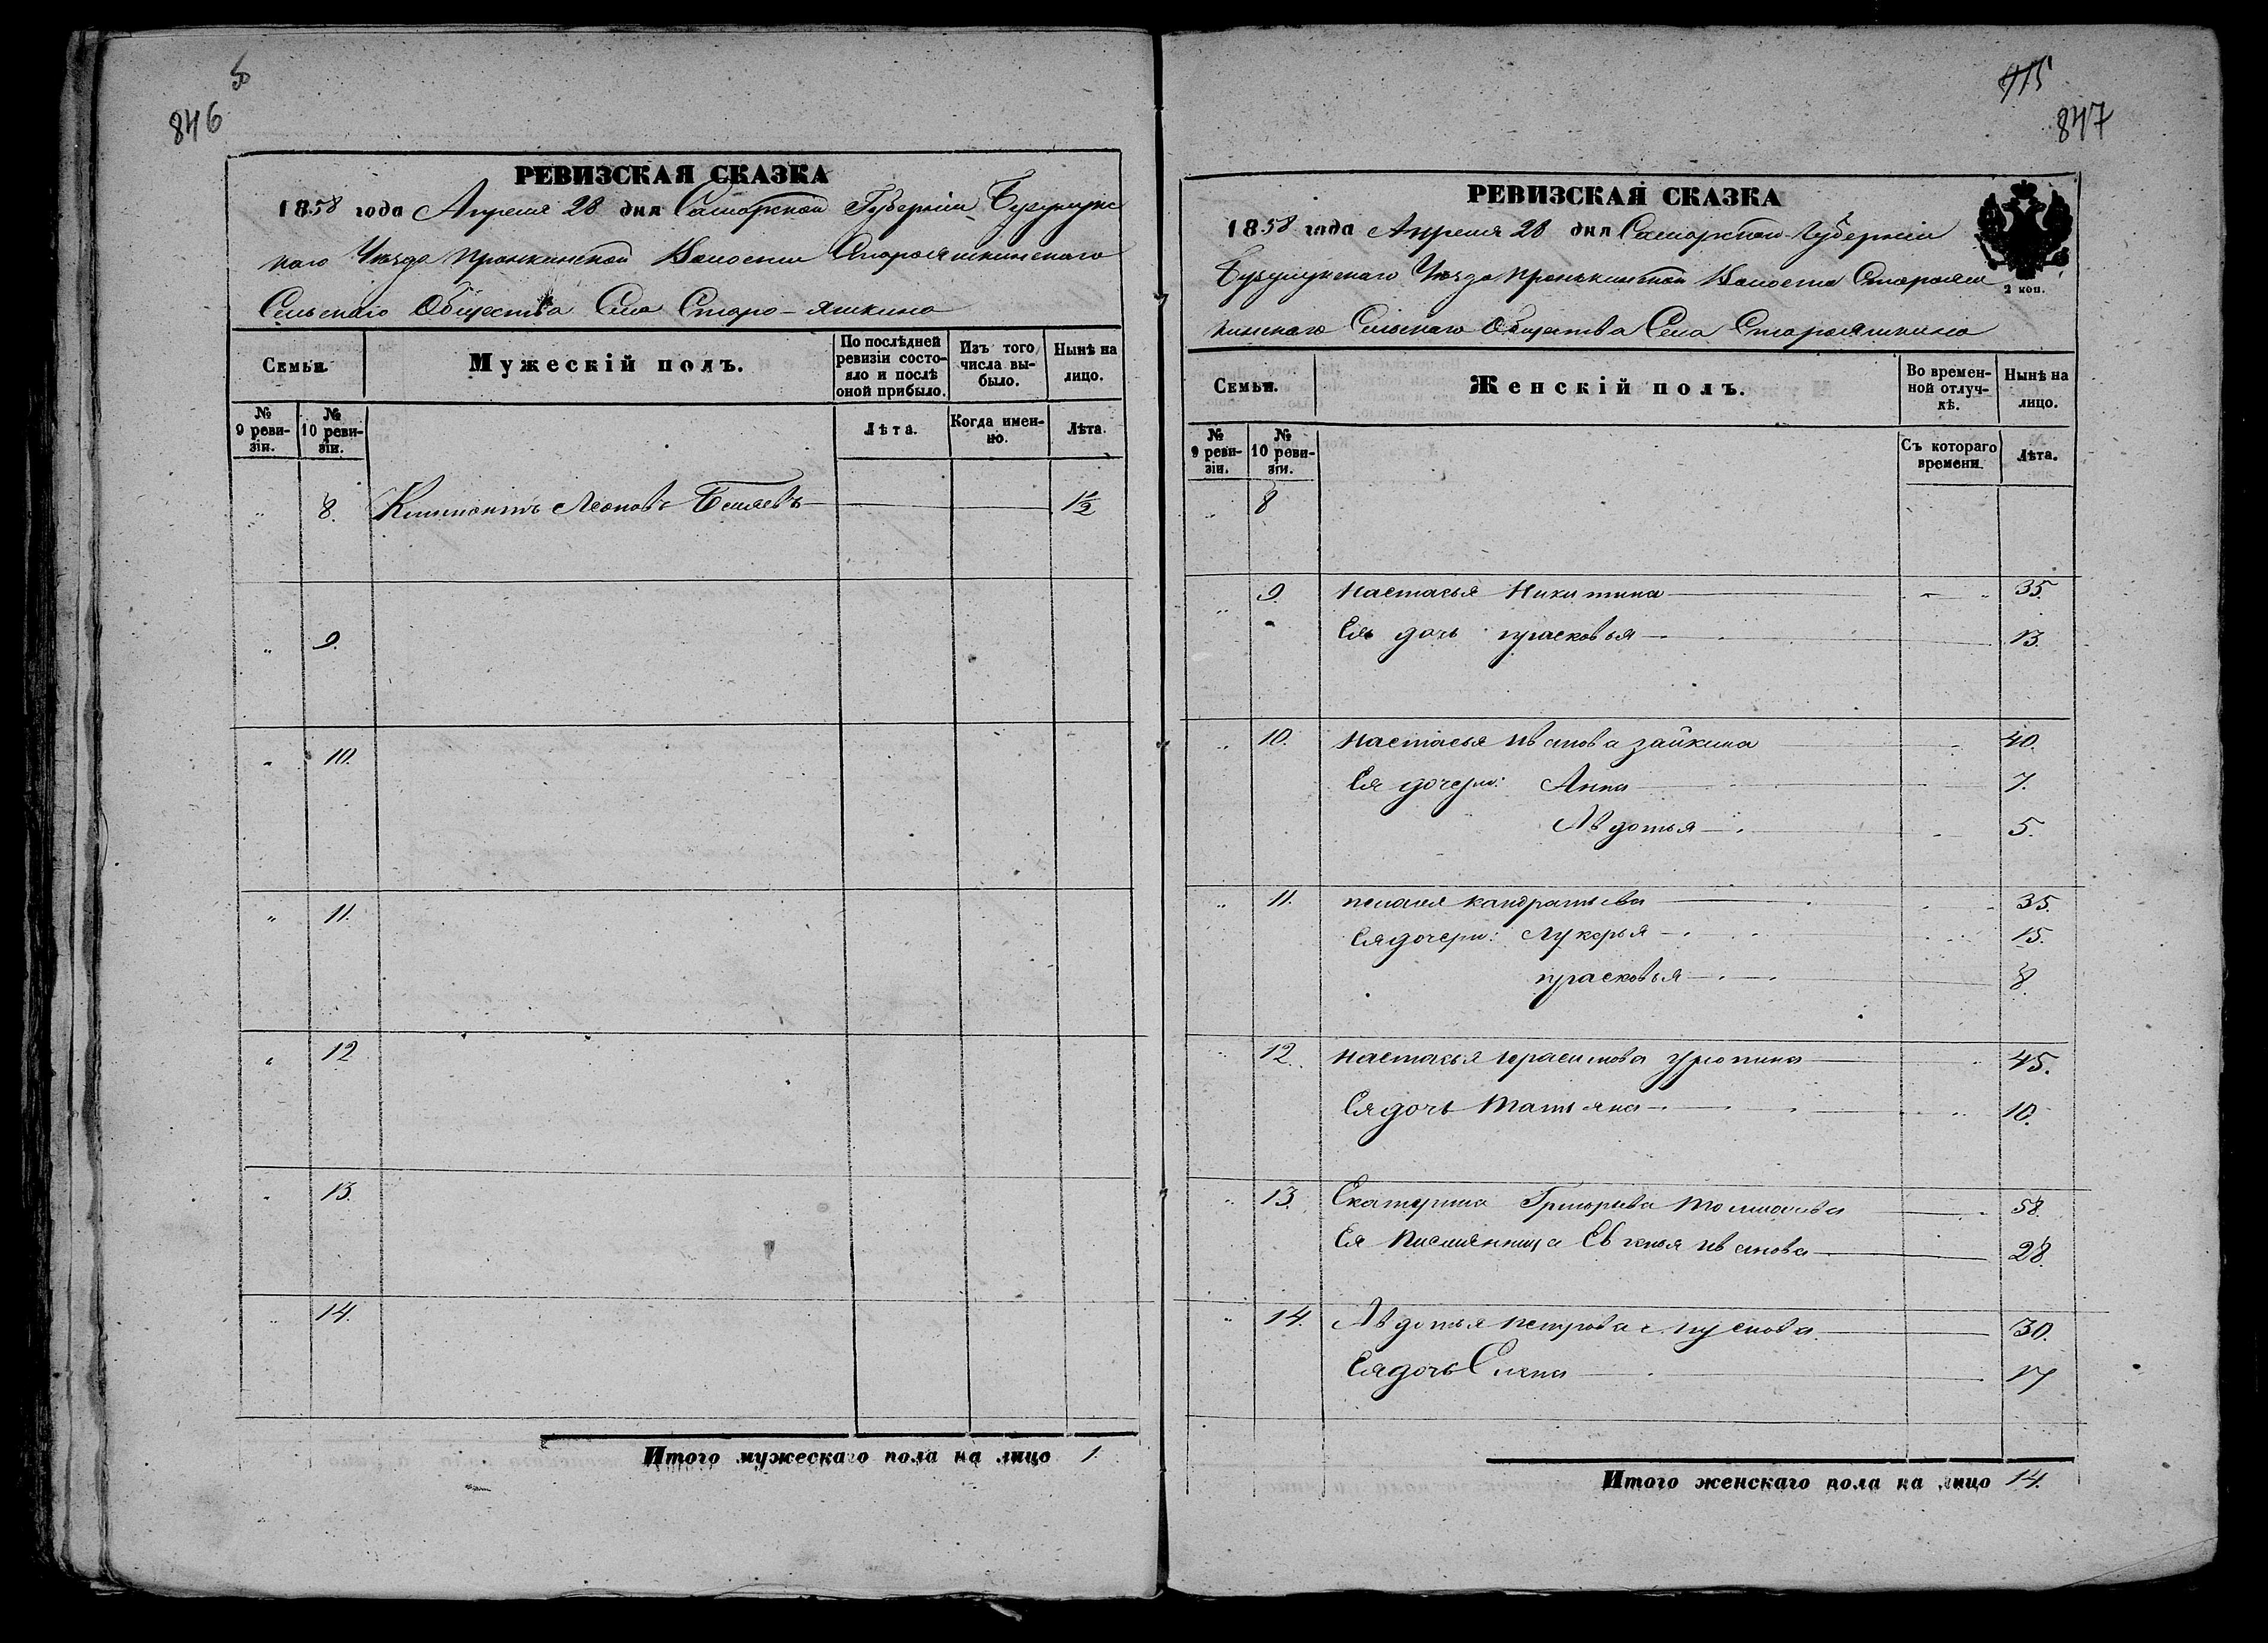 846
РЕВИЗСКАЯ СКАЗКА
1858 года Апреля 28 дня Самарской Губернiи Бузулукс
каго Уѣзда Пронкинской Волости Старояшкинскаго
Сельскаго Общества Села Старо-яшкина
Семьи.
Мужескiй полъ.
По послѣдней ревизiи состояло и послѣ оной прибыло.
Изъ того числа выбыло.
Нынѣ на лицо.
№ 9 ревизiи.
№ 10 ревизiи.
Лѣта.
Когда именно.
Лѣта.
" 8. Климонтъ Леоновъ Беляевъ 1½
" 9.
" 10.
" 11.
" 12
" 13.
" 14.
Итого мужескаго пола на лицо 1.
715
847
РЕВИЗСКАЯ СКАЗКА
1858 года Апреля 28 дня Самарской Губернiи
Бузулукскаго Уѣзда Пронькинской Волости Старояш
2 коп.
кинскаго Сельскаго Общества Села Старояшкина
Семьи.
Женскiй полъ.
Во временной отлучкѣ.
Нынѣ на лицо.
№ 9 ревизiи.
№ 10 ревизiи.
Съ котораго времени.
Лѣта.
" 8
" 9. Настасья Никитина 35.
Ея дочь прасковья 13.
" 10. Настасья Иванова зайкина 40.
Ея дочери: Анна 7.
Авдотья 5.
" 11. пелагея кандратьева 35.
Ея дочери: Лукерья 15.
прасковья 8.
" 12. Настасья Герасимова 45.
Ея дочь Татьяна 10.
" 13. Екатерина Григорьева Толмачева 58.
Ея Племянница Евгенья Иванова 28.
" 14. Авдотья Петрова 30.
Ея дочь Елена 17
Итого женскаго пола на лицо 14.